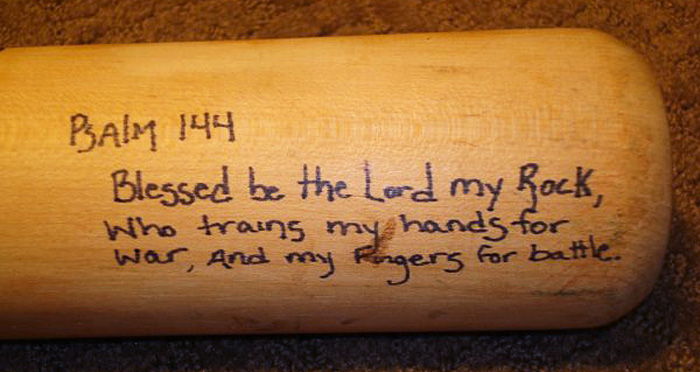 PSAlM 144
Blessed be the Lord my Rock,
Who trains my hands for
War, And my Fingers for battle.